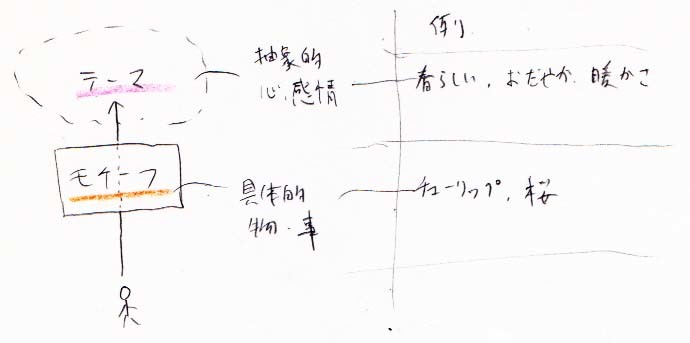 例
テーマ
抽象的
心、感情
春らしい、おだやか、暖かさ
モチーフ
具体的
物・事
チューリップ、桜